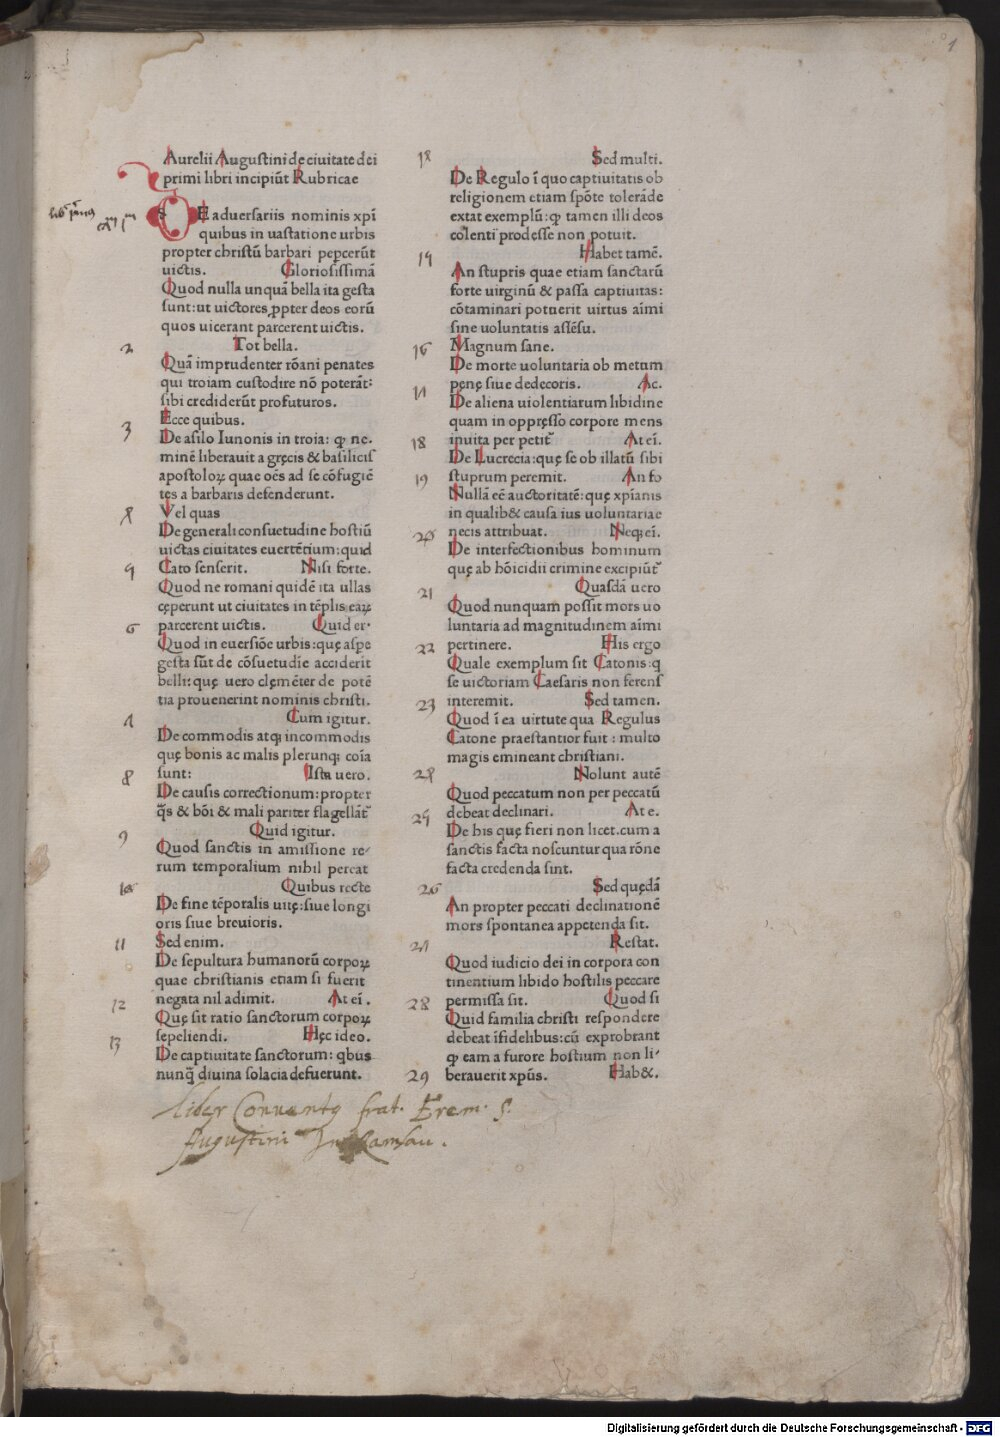 1
Aurelii Augustini de ciuitate dei
primi libri incipiūt Rubricae
DE aduersariis nominis xp̄i
quibus in uastatione urbis
propter christū barbari pepcerūt
uictis. Gloriosissimā
Quod nulla unquā bella ita gesta
sunt: ut uictores ꝓpter deos eorū
quos uicerant parcerent uictis.
2 Tot bella.
Quā imprudenter rōani penates
qui troiam custodire nō poterāt:
sibi crediderūt profuturos.
Ecce quibus.
3
De asilo Iunonis in troia: ꝙ ne.
minē liberauit a gręcis & basilicis
apostoloꝝ quae oēs ad se cōfugiē
tes a barbaris defenderunt.
4 Vel quas
De generali consuetudine hostiū
uictas ciuitates euertētium: quid
5 Cato senserit. Nisi forte.
Quod ne romani quidē ita ullas
cęperunt ut ciuitates in tēplis eaꝝ
6 parcerent uictis. Quid er.
Quod in euersiōe urbis: quę aspe
gesta sūt de cōsuetudīe acciderit
belli: quę uero clęmēter de potē
tia prouenerint nominis christi.
7 Cum igitur.
De commodis atqꝫ incommodis
quę bonis ac malis plerunqꝫ coīa
8 sunt: Ista uero.
De causis correctionum: propter
q̄s & bōi & mali pariter flagellāt̄
9 Quid igitur.
Quod sanctis in amissione re-
rum temporalium nihil pereat
10 Quibus recte
De fine tēporalis uitę: siue longi
oris siue breuioris.
11 Sed enim.
De sepultura humanorū corpoꝝ
quae christianis etiam si fuerit
12 negata nil adimit. At ei.
Quę sit ratio sanctorum corpoꝝ
13 sepeliendi. Hęc ideo.
De captiuitate sanctorum: qbus
nunq̄ diuina solacia defuerunt.
14 Sed multi.
De Regulo ī quo captiuitatis ob
religionem etiam spōte tolerāde
extat exemplū: ꝙ tamen illi deos
colenti prodesse non potuit.
15 Habet tamē.
An stupris quae etiam sanctarū
forte uirginū & passa captiuitas:
cōtaminari potuerit uirtus aīmi
sine uoluntatis assēsu.
16 Magnum sane.
De morte uoluntaria ob metum
17 pęnę siue dedecoris. Ac.
De aliena uiolentiarum libidine
quam in oppręsso corpore mens
18 inuita per petit̄ At eī.
De Lucrecia: quę se ob illatū sibi
19 stuprum peremit. An fo
Nullā eē auctoritatē: quę xp̄ianis
in qualib& causa ius uoluntariae
20 necis attribuat. Neqꝫ eī.
De interfectionibus hominum
quę ab hōicidii crimine excipiūt̄
21 Quasdā uero
Quod nunquam possit mors uo
luntaria ad magnitudinem aīmi
22 pertinere. His ergo
Quale exemplum sit Catonis: q
se uictoriam Caesaris non ferens
23 interemit. Sed tamen.
Quod ī ea uirtute qua Regulus
Catone praestantior fuit: multo
magis emineant christiani.
24 Nolunt autē
Quod peccatum non per peccatū
25 debeat declinari. At e.
De his quę fieri non licet. cum a
sanctis facta noscuntur qua rōne
facta credenda sint.
26 Sed quędā
An propter peccati declinationē
mors spontanea appetenda sit.
27 Restat.
Quod iudicio dei in corpora con
tinentium libido hostilis peccare
28 permissa sit. Quod si
Quid familia christi respondere
debeat īfidelibus: cū exprobrant
ꝙ eam a furore hostium non li-
29 berauerit xp̄us. Hab&.
Liber Conuentꝰ frat. Erem. S.
Augustini In Ramsau.
Digitalisierung gefördert durch die Deutsche Forschungsgemeinschaft - DFG